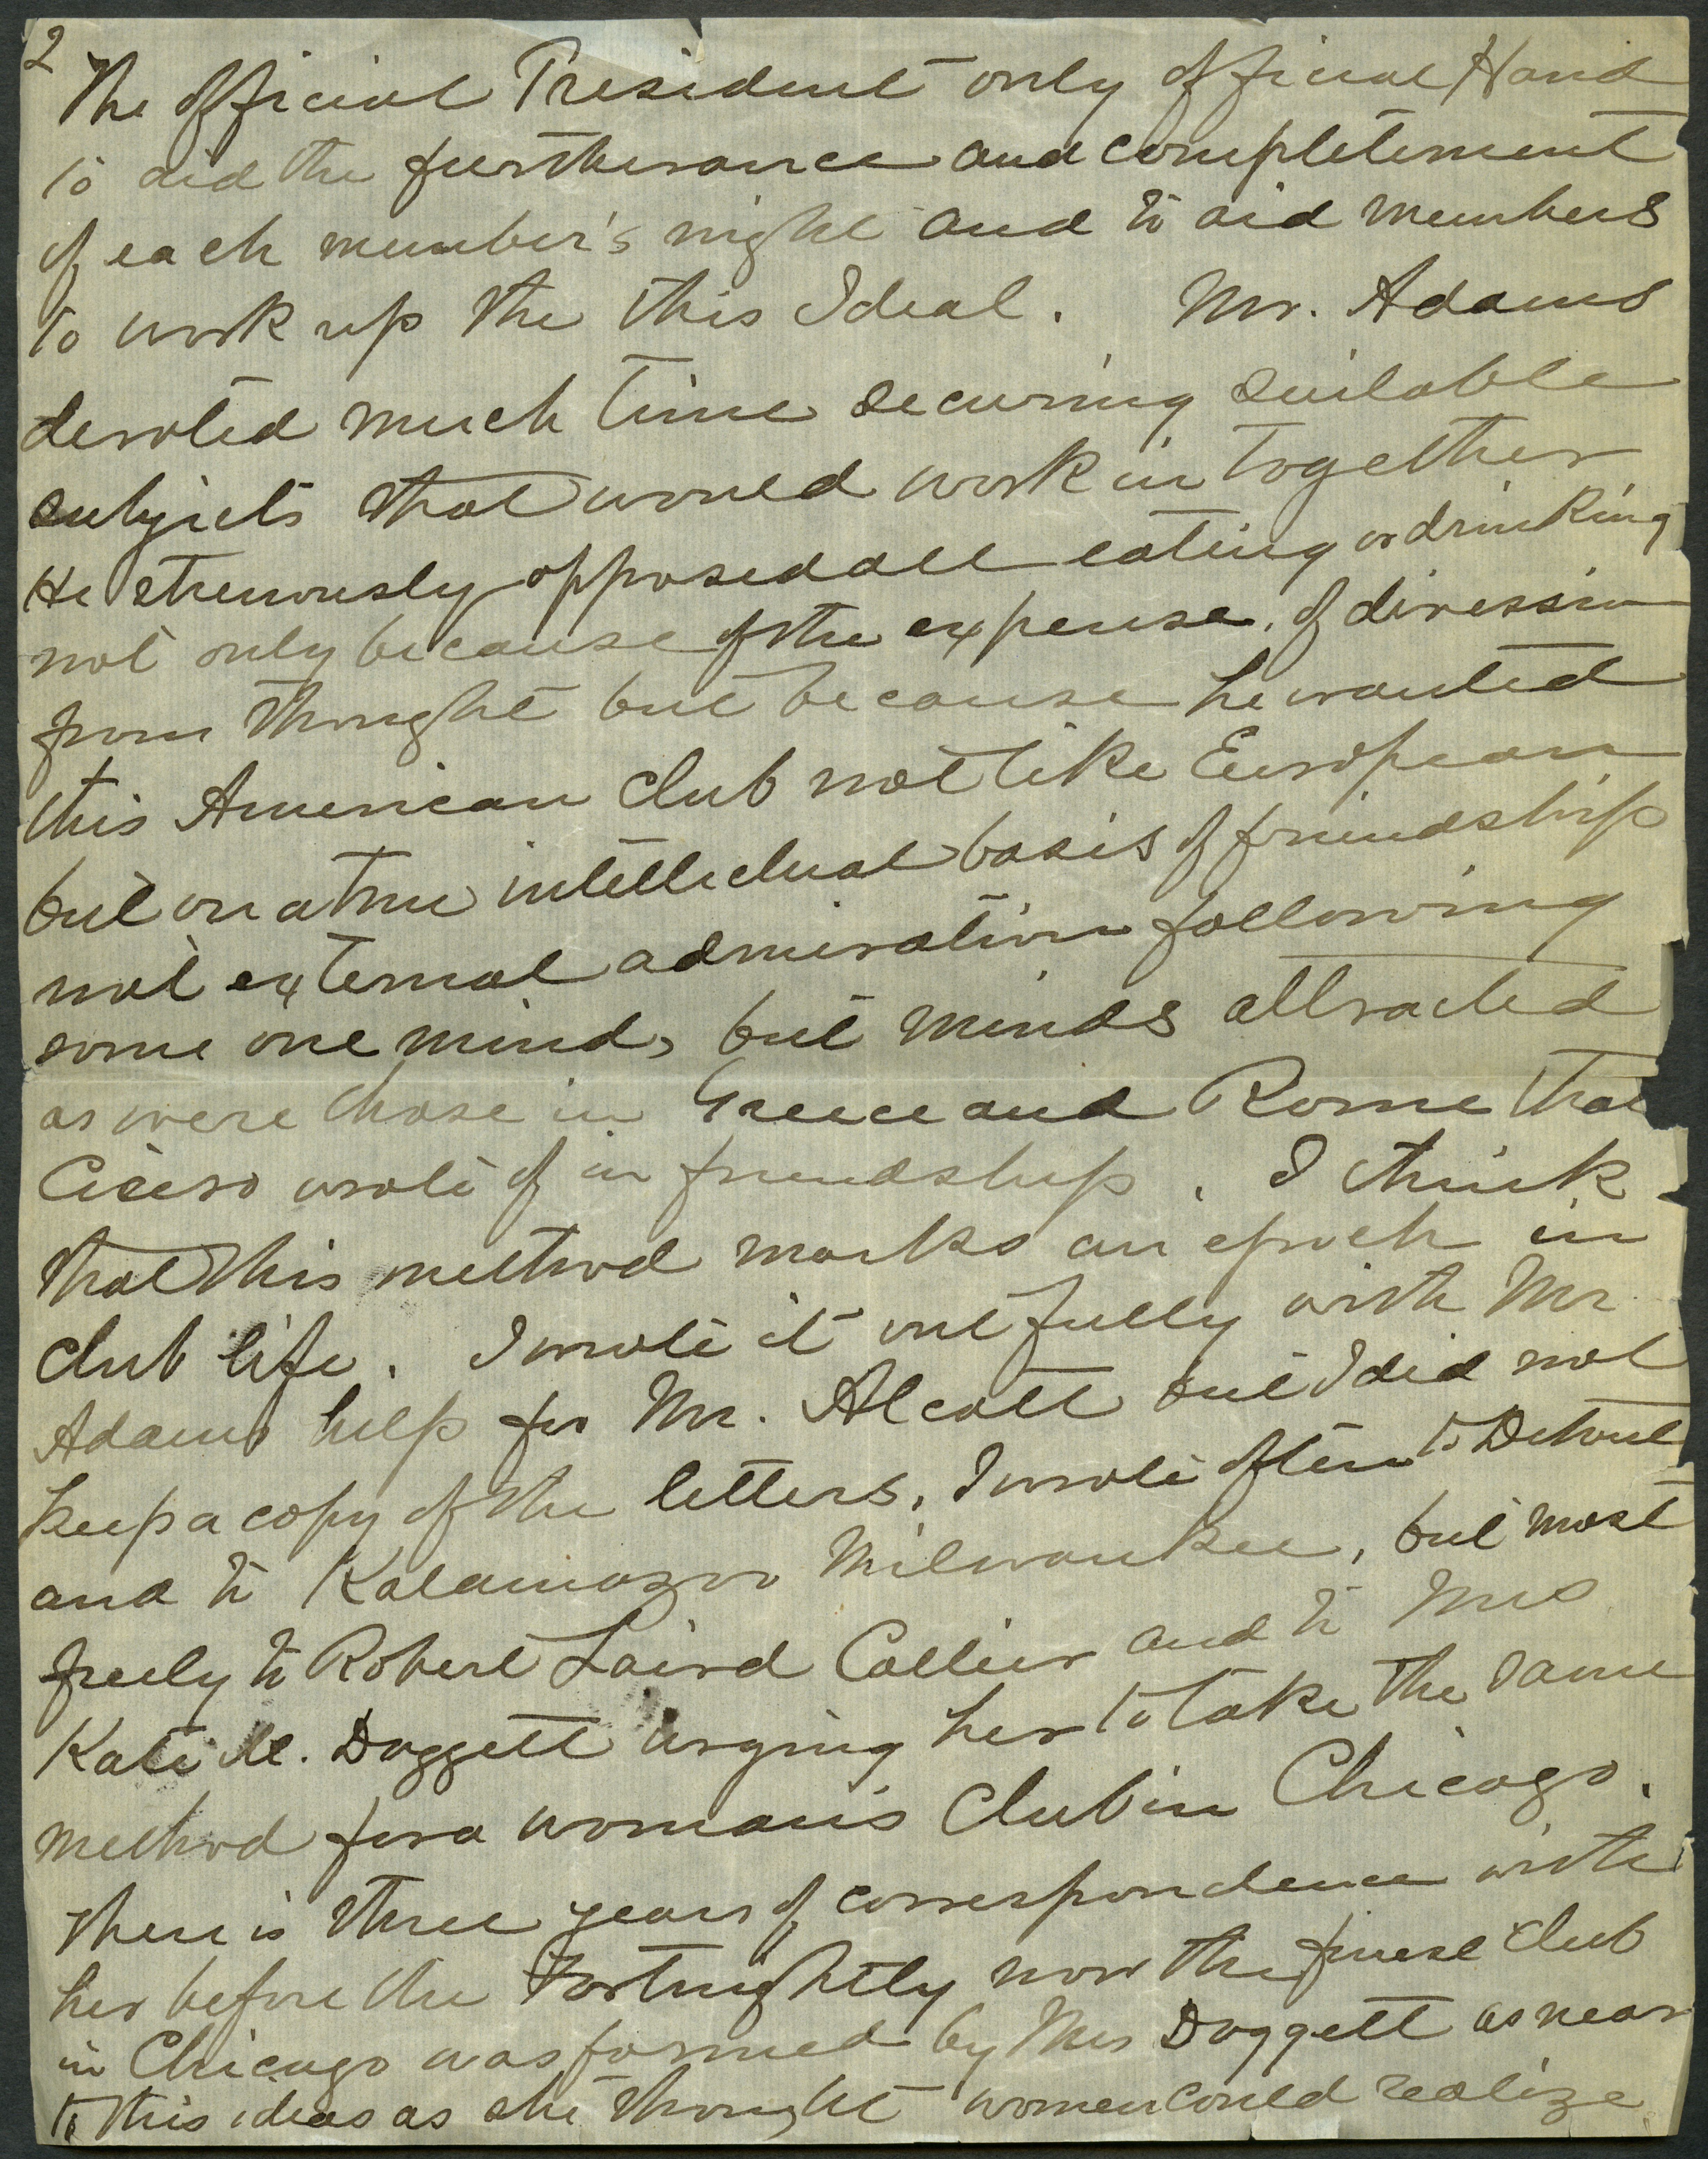 2
The official President only official Hand
to aid the furtherance and completement
of each member's night and to aid members
to work up the this Ideal. Mr. Adams
devoted much time securing suitable
subjects that would work in together
He strenuously opposed all eating or drinking
not only because of the expense, of diression
from thought but because he wanted
this American club not like European
but on a true intellectual basis of friendship
not external admiration following
some one mind, but minds attracted
as were those in Greece and Rome that
Cicero wrote of in friendship. I think
that this method marks an epoch in
club life. I wrote it out fully with Mr
Adams help for Mr. Alcott but I did not
keep a copy of the letters, I wrote often to Detroit
and to Kalamazoo Milwaukee, but most
freely to Robert Laird Collier and to Mrs
Kate N. Doggett urging her to take the same
method for a woman's Club in Chicago.
There is three years of correspondence with
her before the Fortnightly now the finest club
in Chicago was formed by Mrs Doggett as near
to this ideas as she thought women could realize